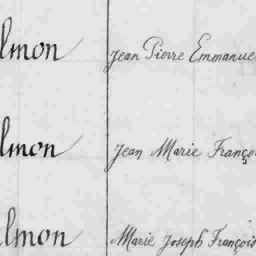 lmon Jean Pierre Emmanue
lmon Jean Marie Franço
lmon Marie Joseph François